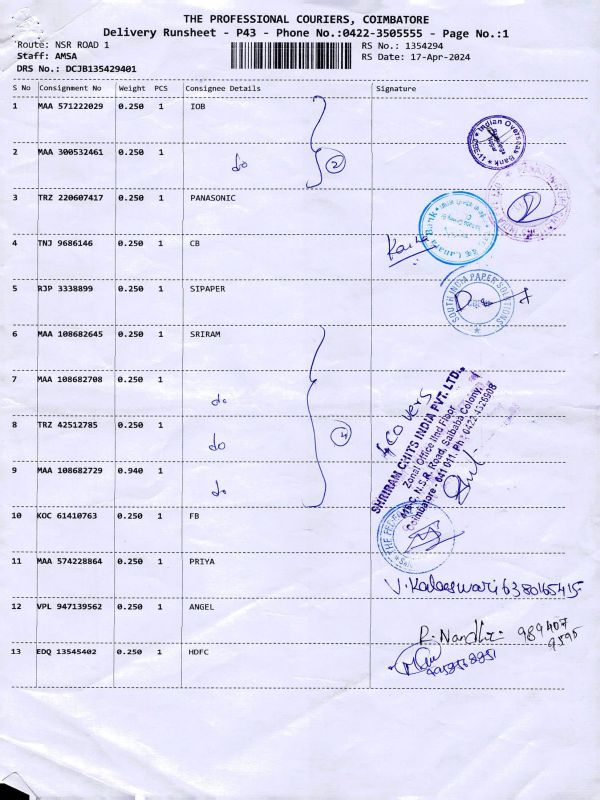 THE PROFESSIONAL COURIERS, COIMBATORE
Delivery Runsheet - P43 - Phone No.:0422-3505555 - Page No.:1
Route: NSR ROAD 1 RS No.: 1354294
Staff: AMSA RS Date: 17-Apr-2024
DRS No.: DCJB135429401
S No Consignment No Weight PCS Consignee Details Signature
1 MAA 571222029 0.250 1 IOB
Indian Overseas Bank
2 MAA 300532461 0.250 1 do 2
3 TRZ 220607417 0.250 1 PANASONIC
Canara Bank
4 TNJ 9686146 0.250 1 CB
5 RJP 3338899 0.250 1 SIPAPER
SOUTH INDIA PAPER SOLUTIONS
6 MAA 108682645 0.250 1 SRIRAM
7 MAA 108682708 0.250 1 do
4 covers
SHRIRAM CHITS INDIA PVT. LTD.,
Zonal Office IInd Floor
N.S.R. Road, Saibaba Colony,
Coimbatore - 641 011. Ph : 0422-4326908
8 TRZ 42512785 0.250 1 do 4
9 MAA 108682729 0.940 1 do
10 KOC 61410763 0.250 1 FB
11 MAA 574228864 0.250 1 PRIYA
V. Kaleeswari 6380165415
12 VPL 947139562 0.250 1 ANGEL
R. Nandhi 989407
9595
13 EDQ 13545402 0.250 1 HDFC